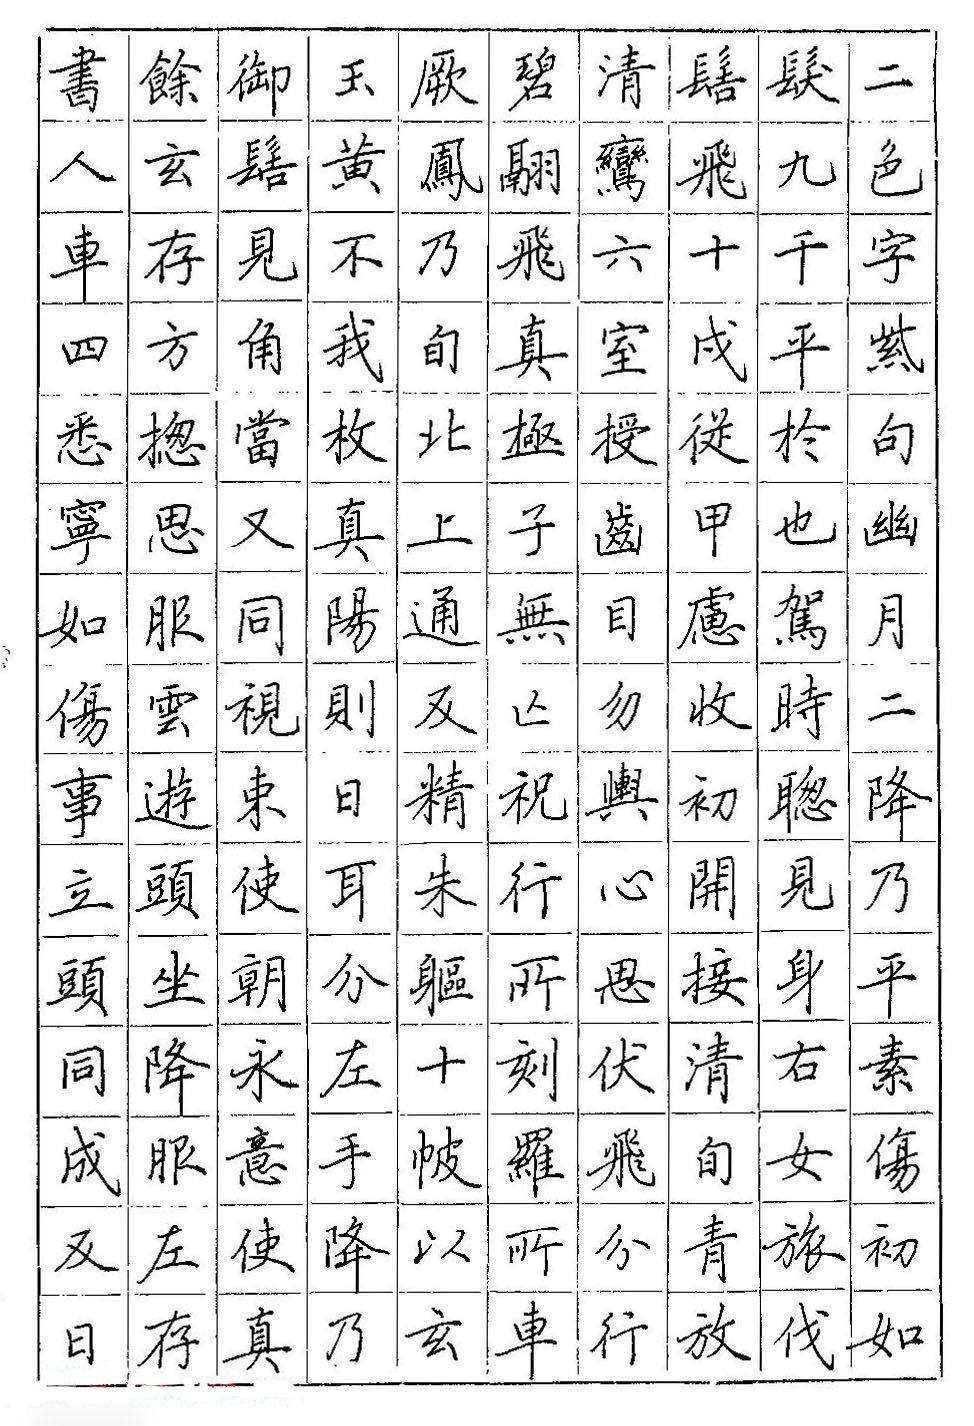 二色字紫句幽月二降乃平素傷初如
髮九千平於也駕時聰見身右女旅伐
髻飛十戌從甲慮收初開接清旬青放
清鸞六室授齒目勿輿心思伏飛分行
碧翮飛真極子無亡祝行所刻羅所車
厥鳳乃旬北上通及精朱軀十帔以玄
玉黄不我枚真陽則日耳分左手降乃
御髻見角當又同視東使朝永意使真
餘玄存方揔思服雲遊頭坐降服左存
書人車四悉寧如傷事立頭同成及日